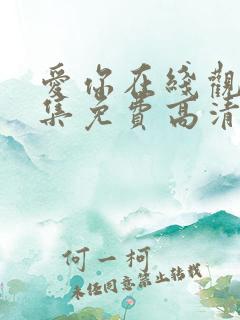 愛你在綫觀
集免費高清
何一柯
未经同意禁止转载